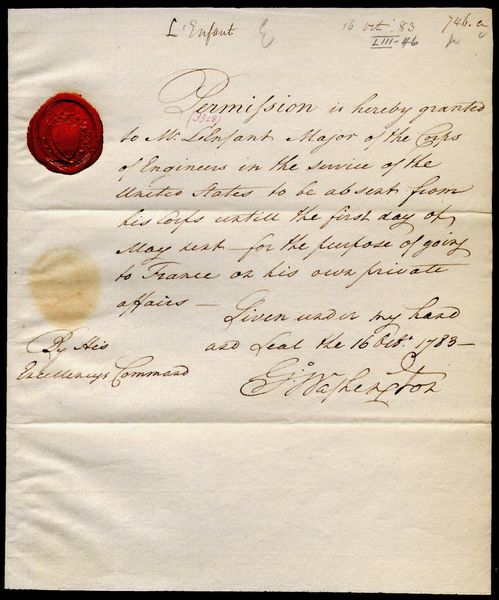 L'Enfant
16 Oct. 83
746. a
LIII-46
Permission is hereby granted
(5328)
to Mr. L'Enfant Major of the Corps
of Engineers in the service of the
United States to be absent from
his Corps untill the first day of
May next — for the purpose of going
to France on his own private
affairs —
Given under my hand
and Seal the 16 Octr. 1783 —
Go: Washington
By His
Excellencys Command